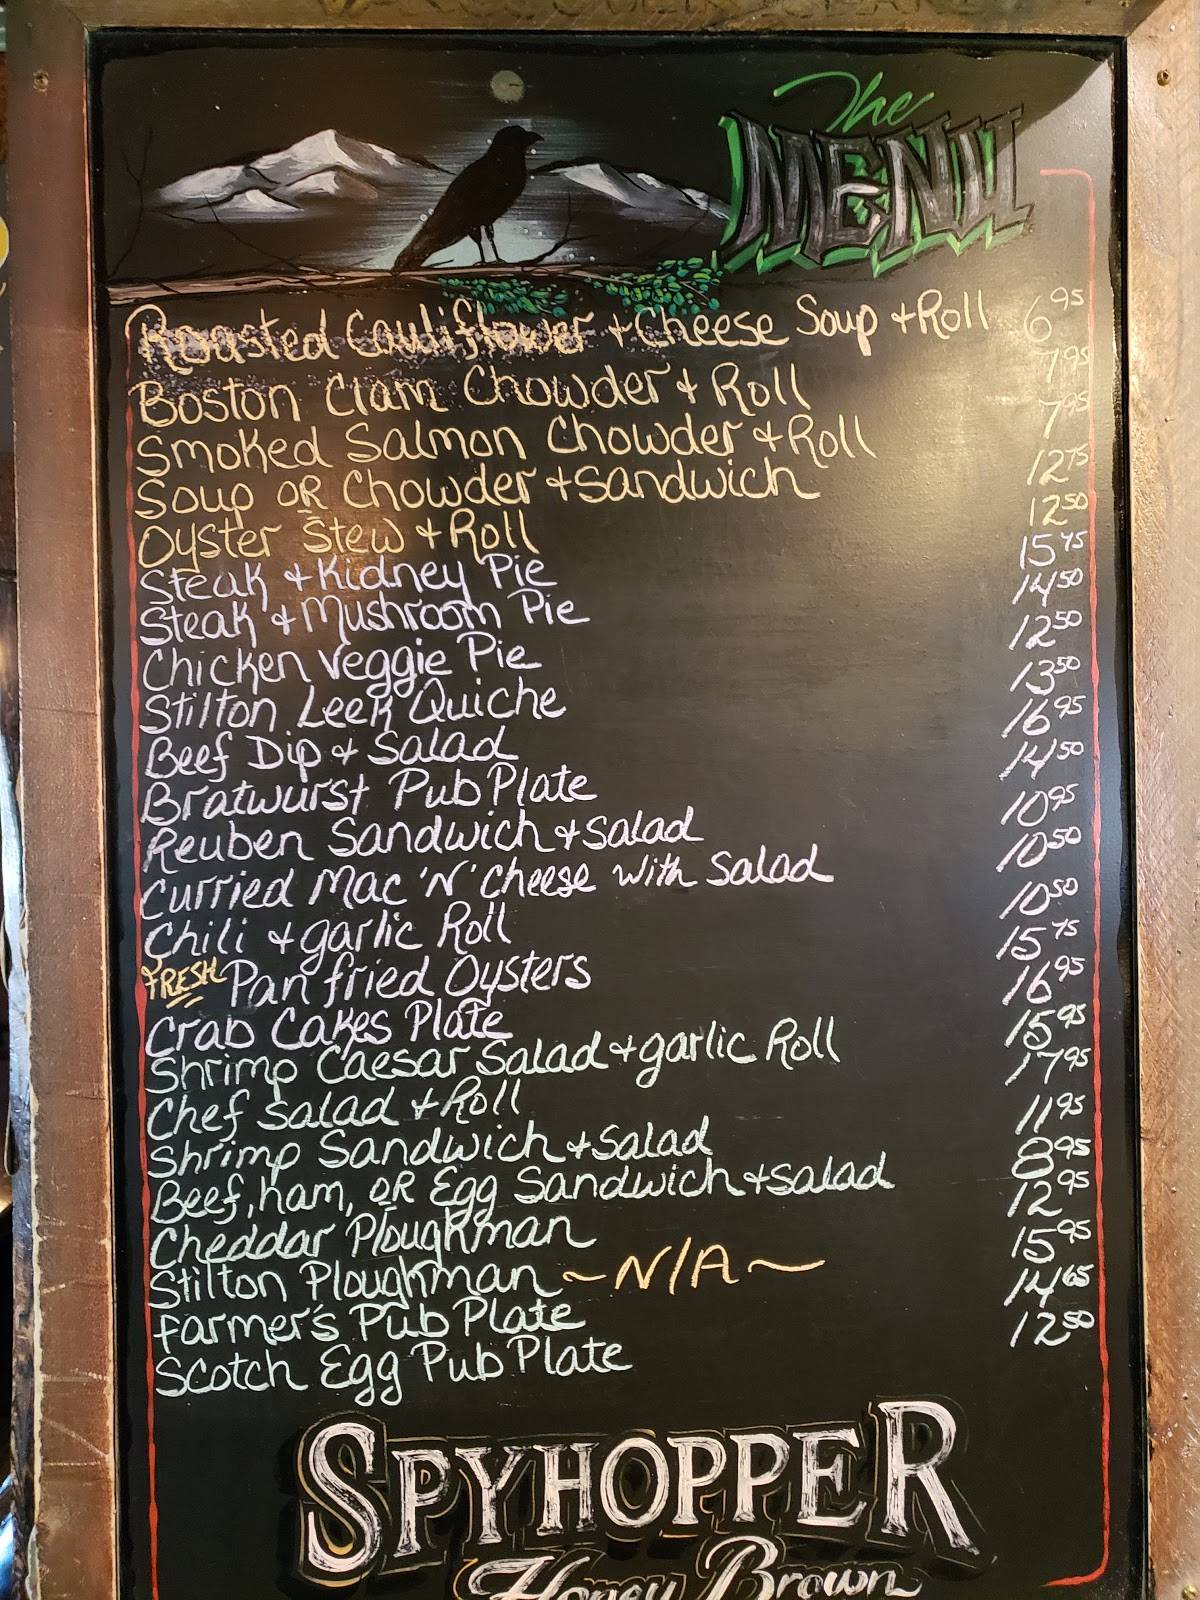 The
MENU
Roasted Cauliflower + Cheese Soup + Roll 6 95
Boston Clam Chowder + Roll 7 95
Smoked Salmon Chowder + Roll 7 95
Soup OR Chowder + Sandwich 12 75
Oyster Stew + Roll 12 50
Steak + Kidney Pie 15 75
Steak + Mushroom Pie 14 50
Chicken Veggie Pie 12 50
Stilton Leek Quiche 13 50
Beef Dip + Salad 16 95
Bratwurst Pub Plate 14 50
Reuben Sandwich + Salad 10 95
Curried Mac 'N' Cheese with Salad 10 50
Chili + garlic Roll 10 50
FRESH Pan fried Oysters 15 75
Crab Cakes Plate 16 95
Shrimp Caesar Salad + garlic Roll 15 95
Chef Salad + Roll 17 95
Shrimp Sandwich + Salad 11 95
Beef, ham, OR Egg Sandwich + salad 8 95
Cheddar Ploughman 12 95
Stilton Ploughman ~N/A~ 15 95
Farmer's Pub Plate 14 65
Scotch Egg Pub Plate 12 50
SPYHOPPER
Honey Brown